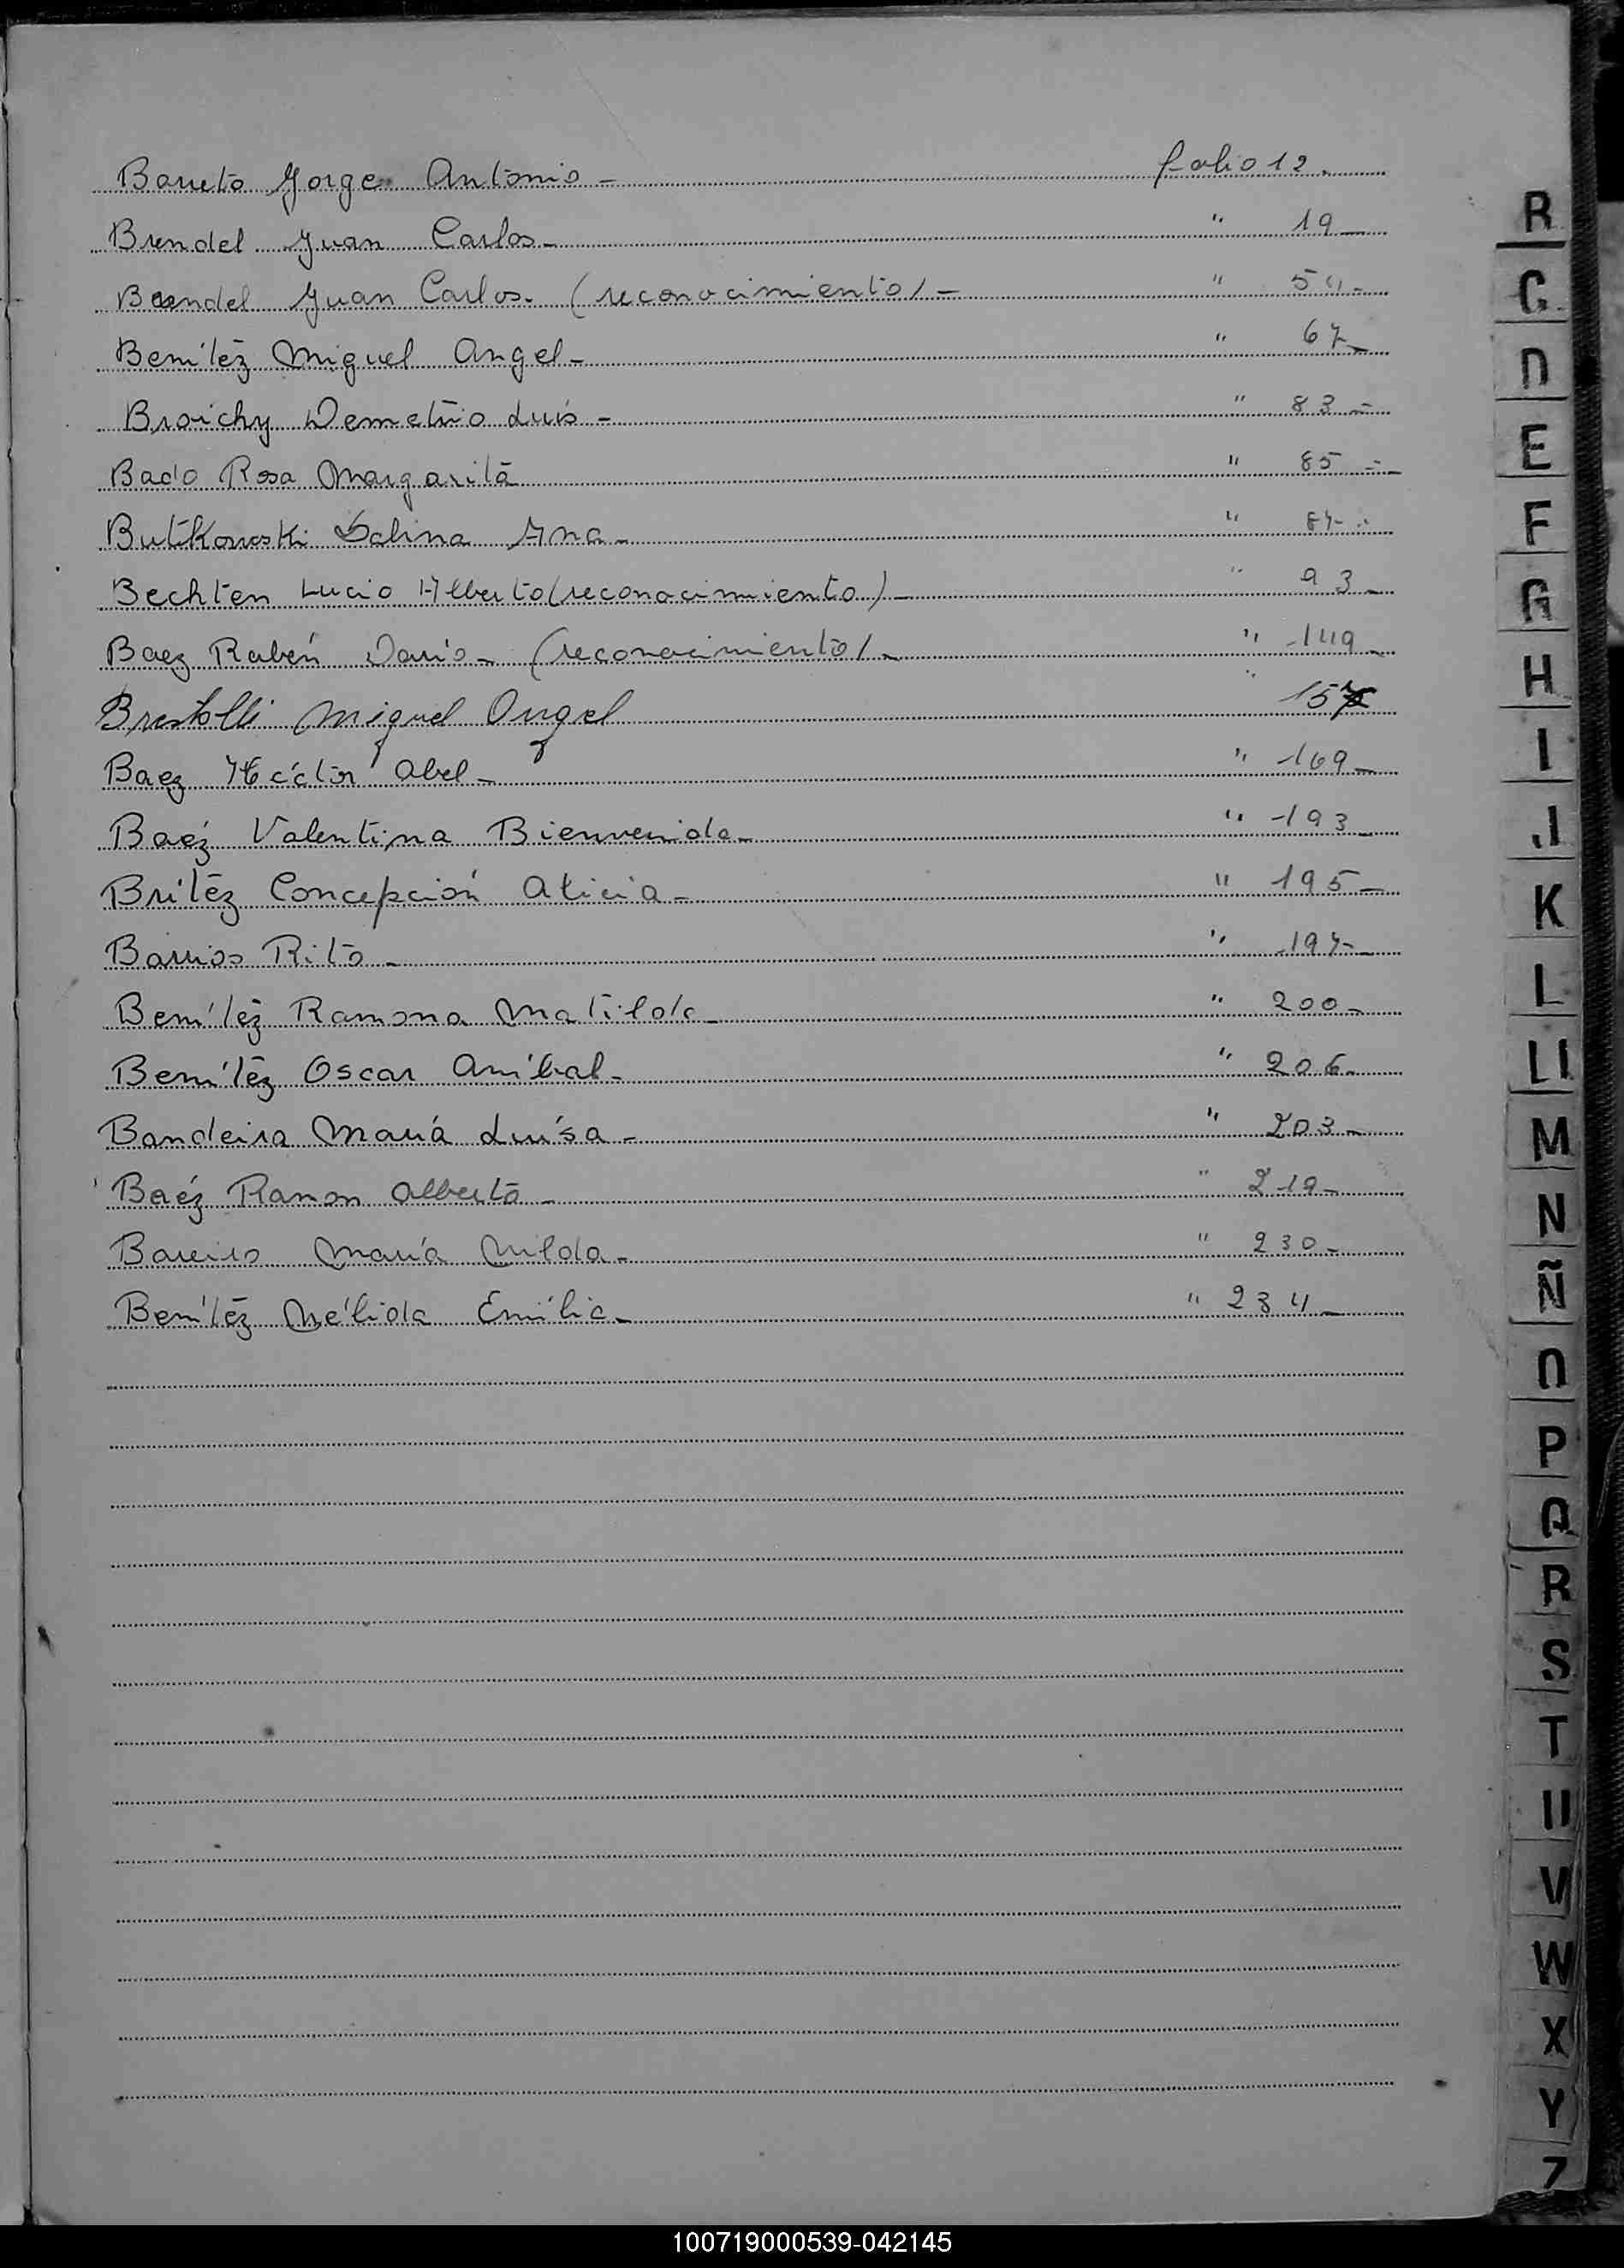 Barreto Jorge Antonio - folio 12.
Brendel Juan Carlos - " 19 -
Brendel Juan Carlos - (reconocimiento) - " 54 -
Benítez Miguel Angel - " 67 -
Broichy Demetrio Luis - " 83 -
Bado Rosa Margarita " 85 -
Butkowski Ana - " 87 -
Bechten Lucio Alberto (reconocimiento) - " 93 -
Baez Rubén Darío - (reconocimiento) - " 149 -
Miguel Angel " 157
Baez Héctor Abel - " 169 -
Baéz Valentina Bienvenida - " 193 -
Britéz Concepción Alicia - " 195 -
Barrios Rito - " 197 -
Benítez Ramona Matilde - " 200 -
Benítez Oscar Aníbal - " 206 -
Bandeira María Luísa - " 203 -
Baéz Ramon Alberto - " 219 -
Bareiro María Nilda - " 230 -
Benítez Nélida Emilia - " 234 -
B
C
D
E
F
G
H
I
J
K
L
Ll
M
N
Ñ
O
P
Q
R
S
T
U
V
W
X
Y
Z
100719000539-042145